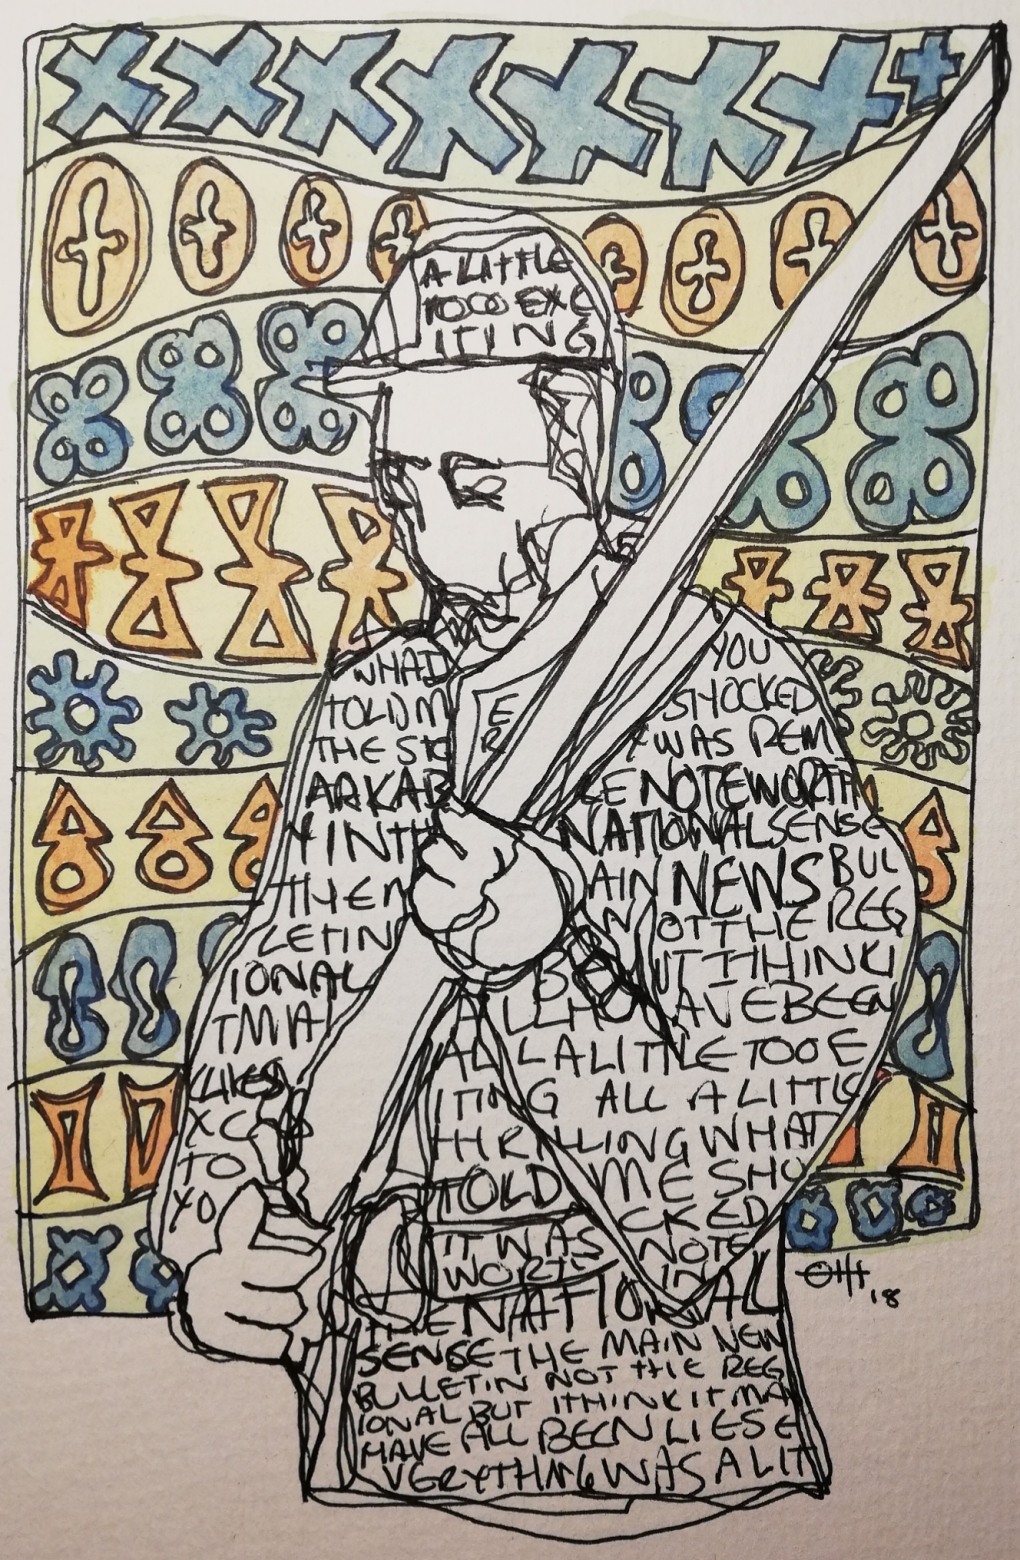 A LITTLE
TOOO EXC
ITING
WHAT
TOLD M
THE STO
ARKAB
Y IN TH
THEN
LETIN
IONAL
TMA
LIES
XC
TO
YO
E
R
YOU
SHOCKED
WAS REM
LE NOTEWORTH
NATIONAL SENSE
AIN NEWS BUL
N NOT THE REG
BE UT I THINK I
ALL HAVE BEEN
ALL A LITTLE TOO E
ITING ALL A LITTLE
THRILLING WHAT
TOLD ME SHO
CKED
IT WAS NOTE
WORT IN
THE NATIONAL
SENSE THE MAIN NEW
BULLETIN NOT THE REG
IONAL BUT I THINK IT MA
HAVE ALL BEEN LIES E
VERYTHING WAS A LIT
18